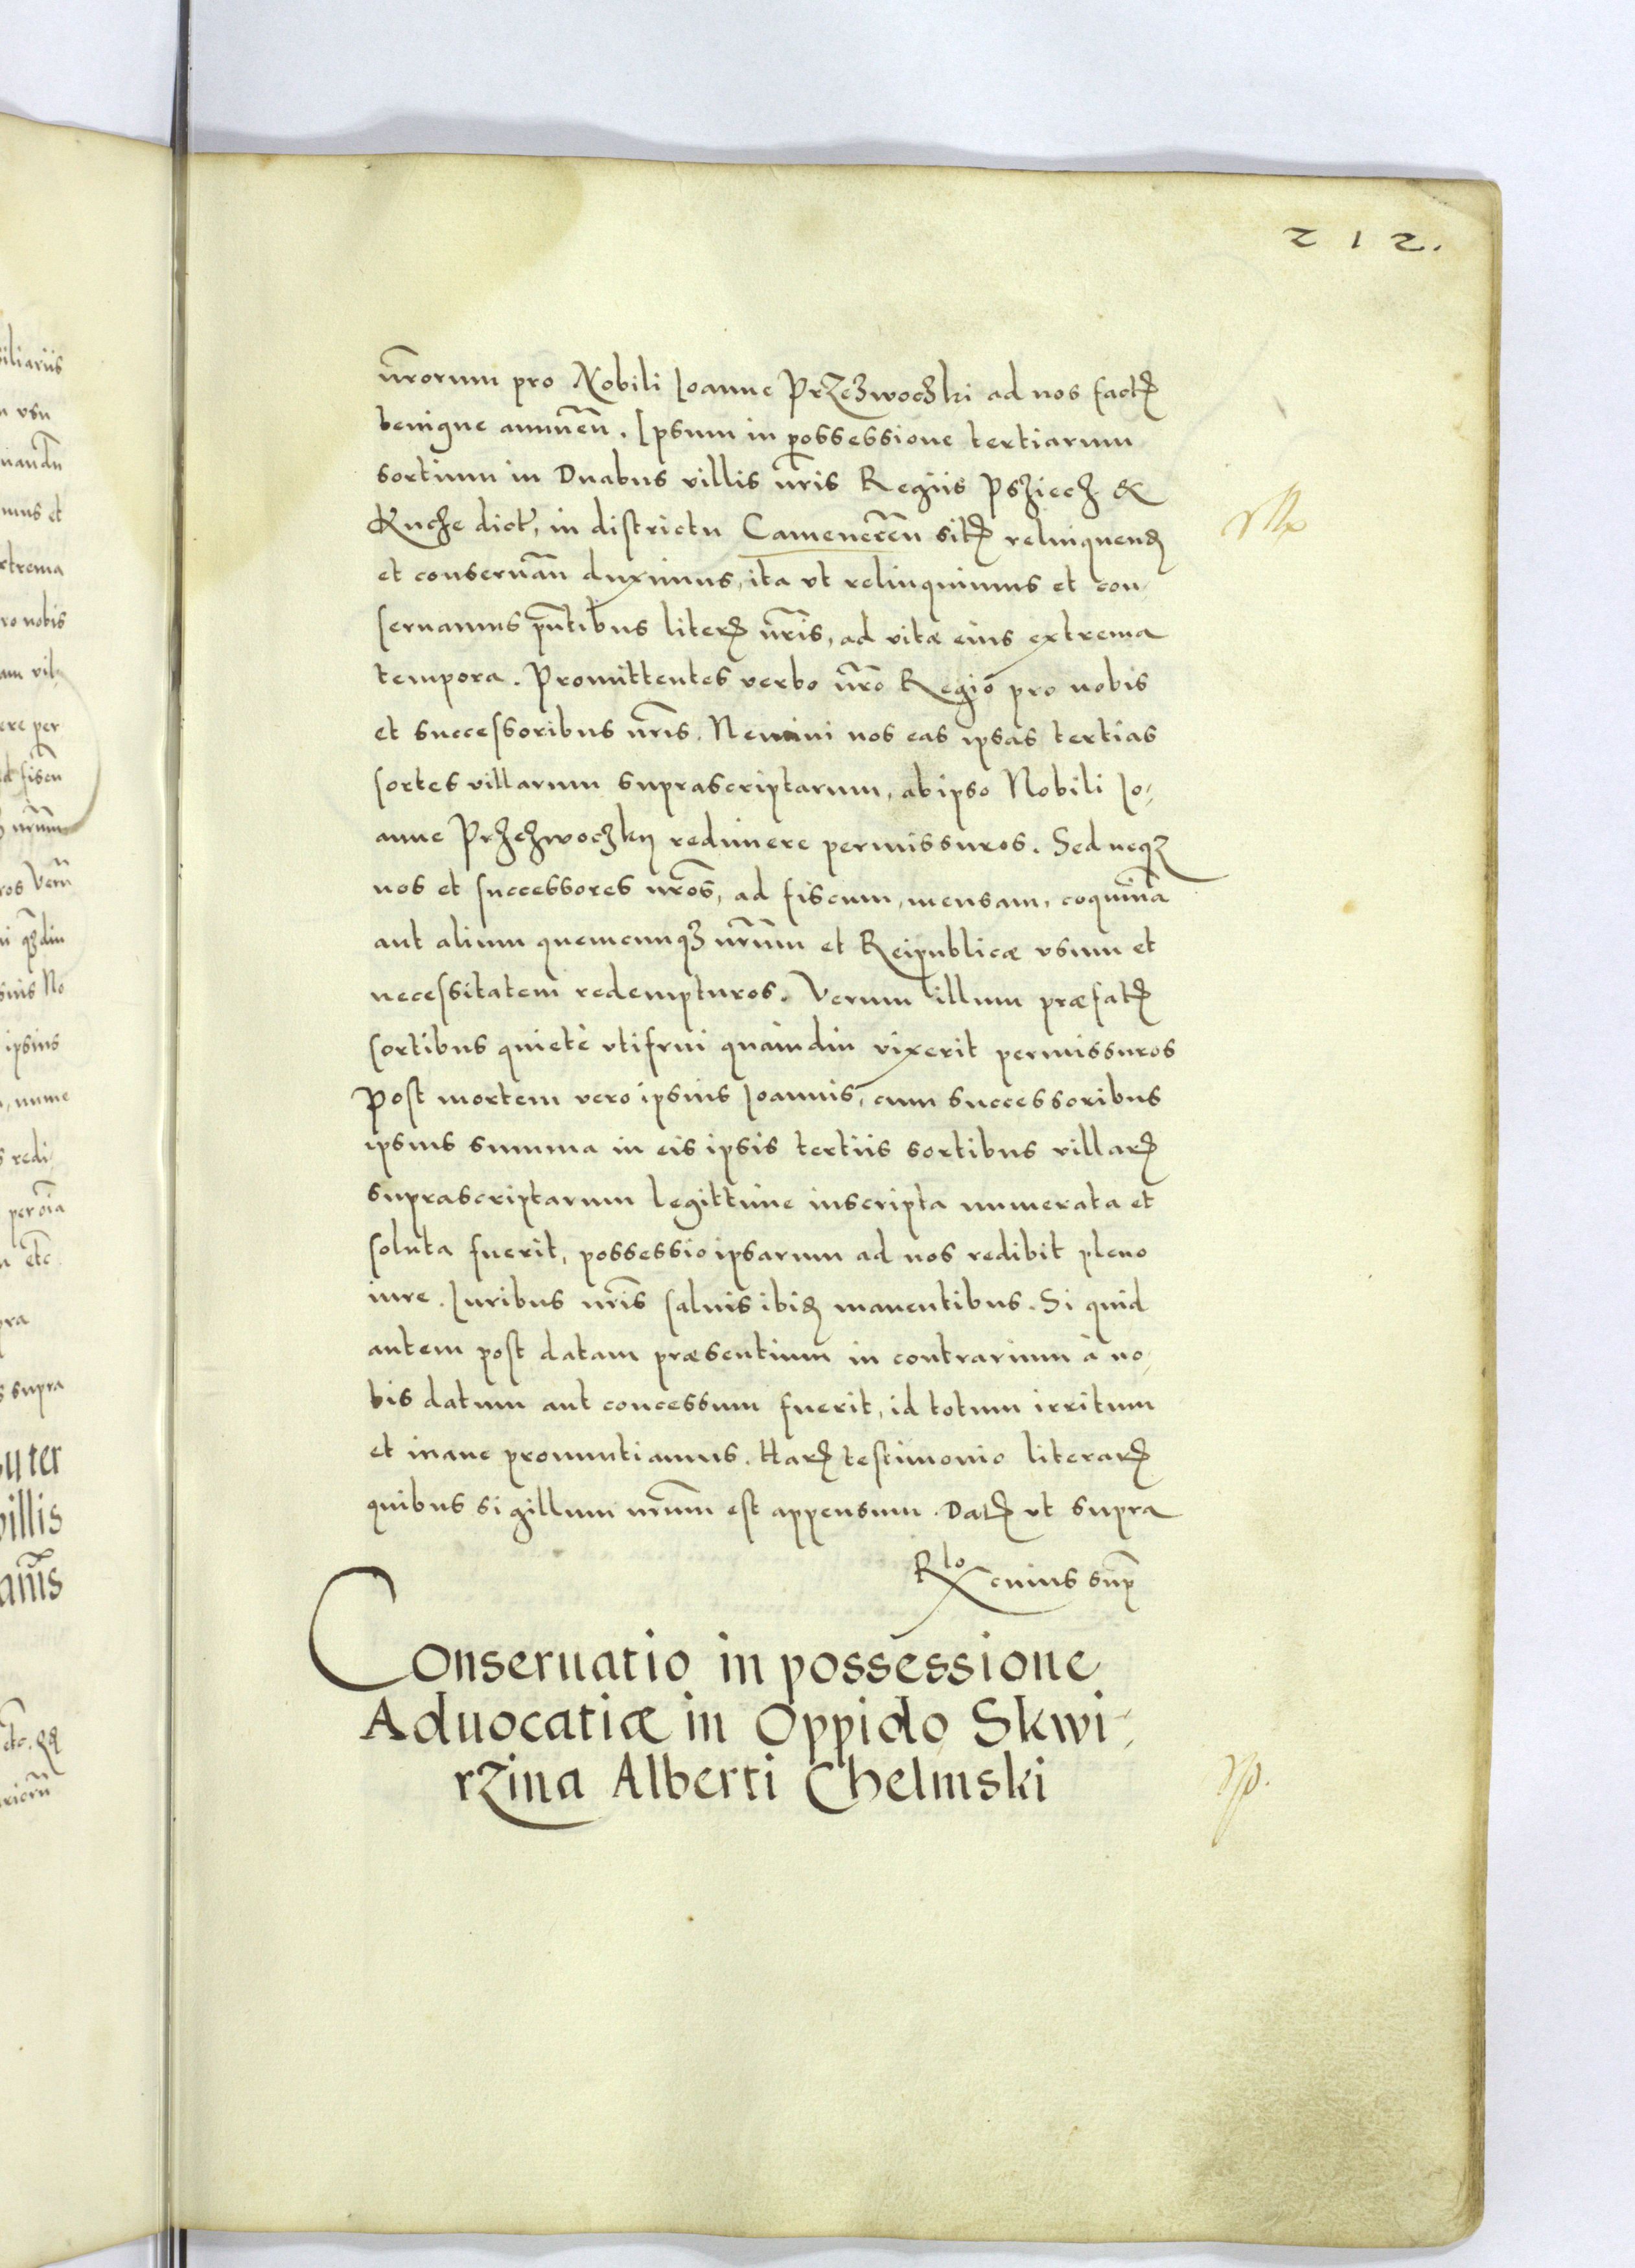 212.
n̄rorum pro Nobili Ioanne Przeʒwoczki ad nos factꝭ
benigne annuen̄. Ipsum in possessione tertiarum
sortium in Duabus villis n̄ris Regiis Psziecz &
Kucze dict', in districtu Camenecen̄ sitꝭ relinquenꝺ
et conseruan̄ duximus, ita vt relinquimus et con-
seruamus pn̄tibus literꝭ n̄ris, ad vitæ eius extrema
tempora. Promittentes verbo n̄ro Regio pro nobis
et successoribus n̄ris. Nemini nos eas ipsas tertias
sortes villarum suprascriptarum, ab ipso Nobili Io-
anne Przezwoczky redimere permissuros. Sed neqꝫ
nos et successores n̄ros, ad fiscum, mensam, coquinā
aut alium quemcunqꝫ n̄rum et Reipublicæ vsum et
necessitatem redempturos. Verum illum præfatꝭ
sortibus quietè vtifrui quàmdiu vixerit permissuros
Post mortem vero ipsius Ioannis, cum successoribus
ipsius summa in eis ipsis tertiis sortibus villarꝭ
suprascriptarum legittime inscripta numerata et
soluta fuerit, possessio ipsarum ad nos redibit pleno
iure. Iuribus n̄ris saluis ibiꝺ manentibus. Si quid
autem post datam præsentium in contrarium à no-
bis datum aut concessum fuerit, id totum irritum
et inane pronuntiamus. Harꝭ testimonio literarꝭ
quibus sigillum n̄rum est appensum. Datꝭ vt supra
Rlo cuius supꝭ
Conseruatio in possessione
Aduocatiæ in Oppido Skwi-
rzina Alberti Chelmski